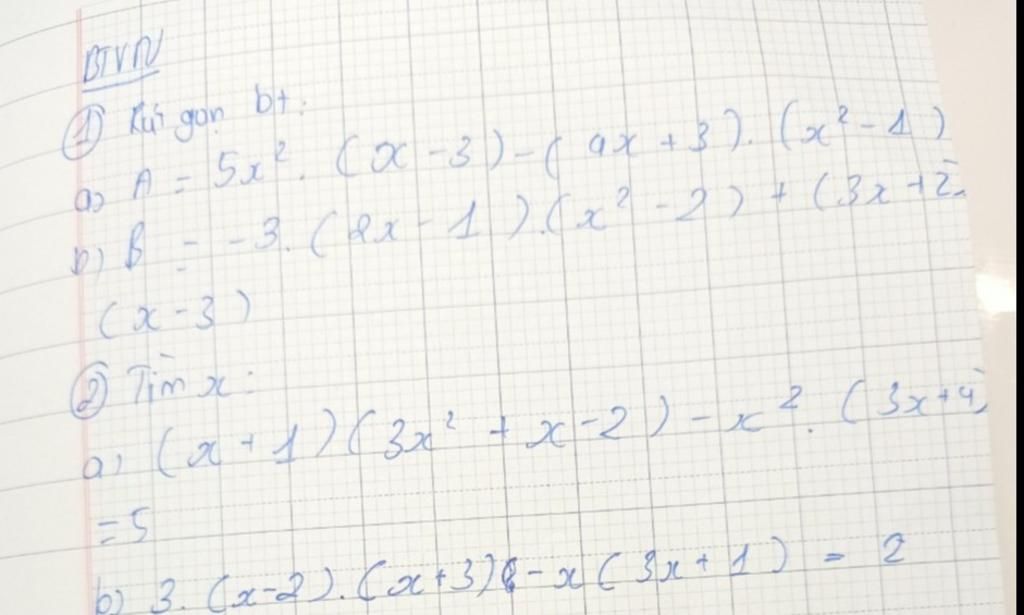 BTVN
① Rút gọn bt:
a) A = 5x². (x - 3) - ( 4x + 3). (x² - 1)
b) B = -3. (2x - 1).(x² - 2) + (3x + 2).
(x - 3)
② Tìm x:
a) (x + 1)(3x² + x - 2) - x². (3x + 4)
= 5
b) 3. (x - 2). (x + 3) - x (3x + 1) = 2